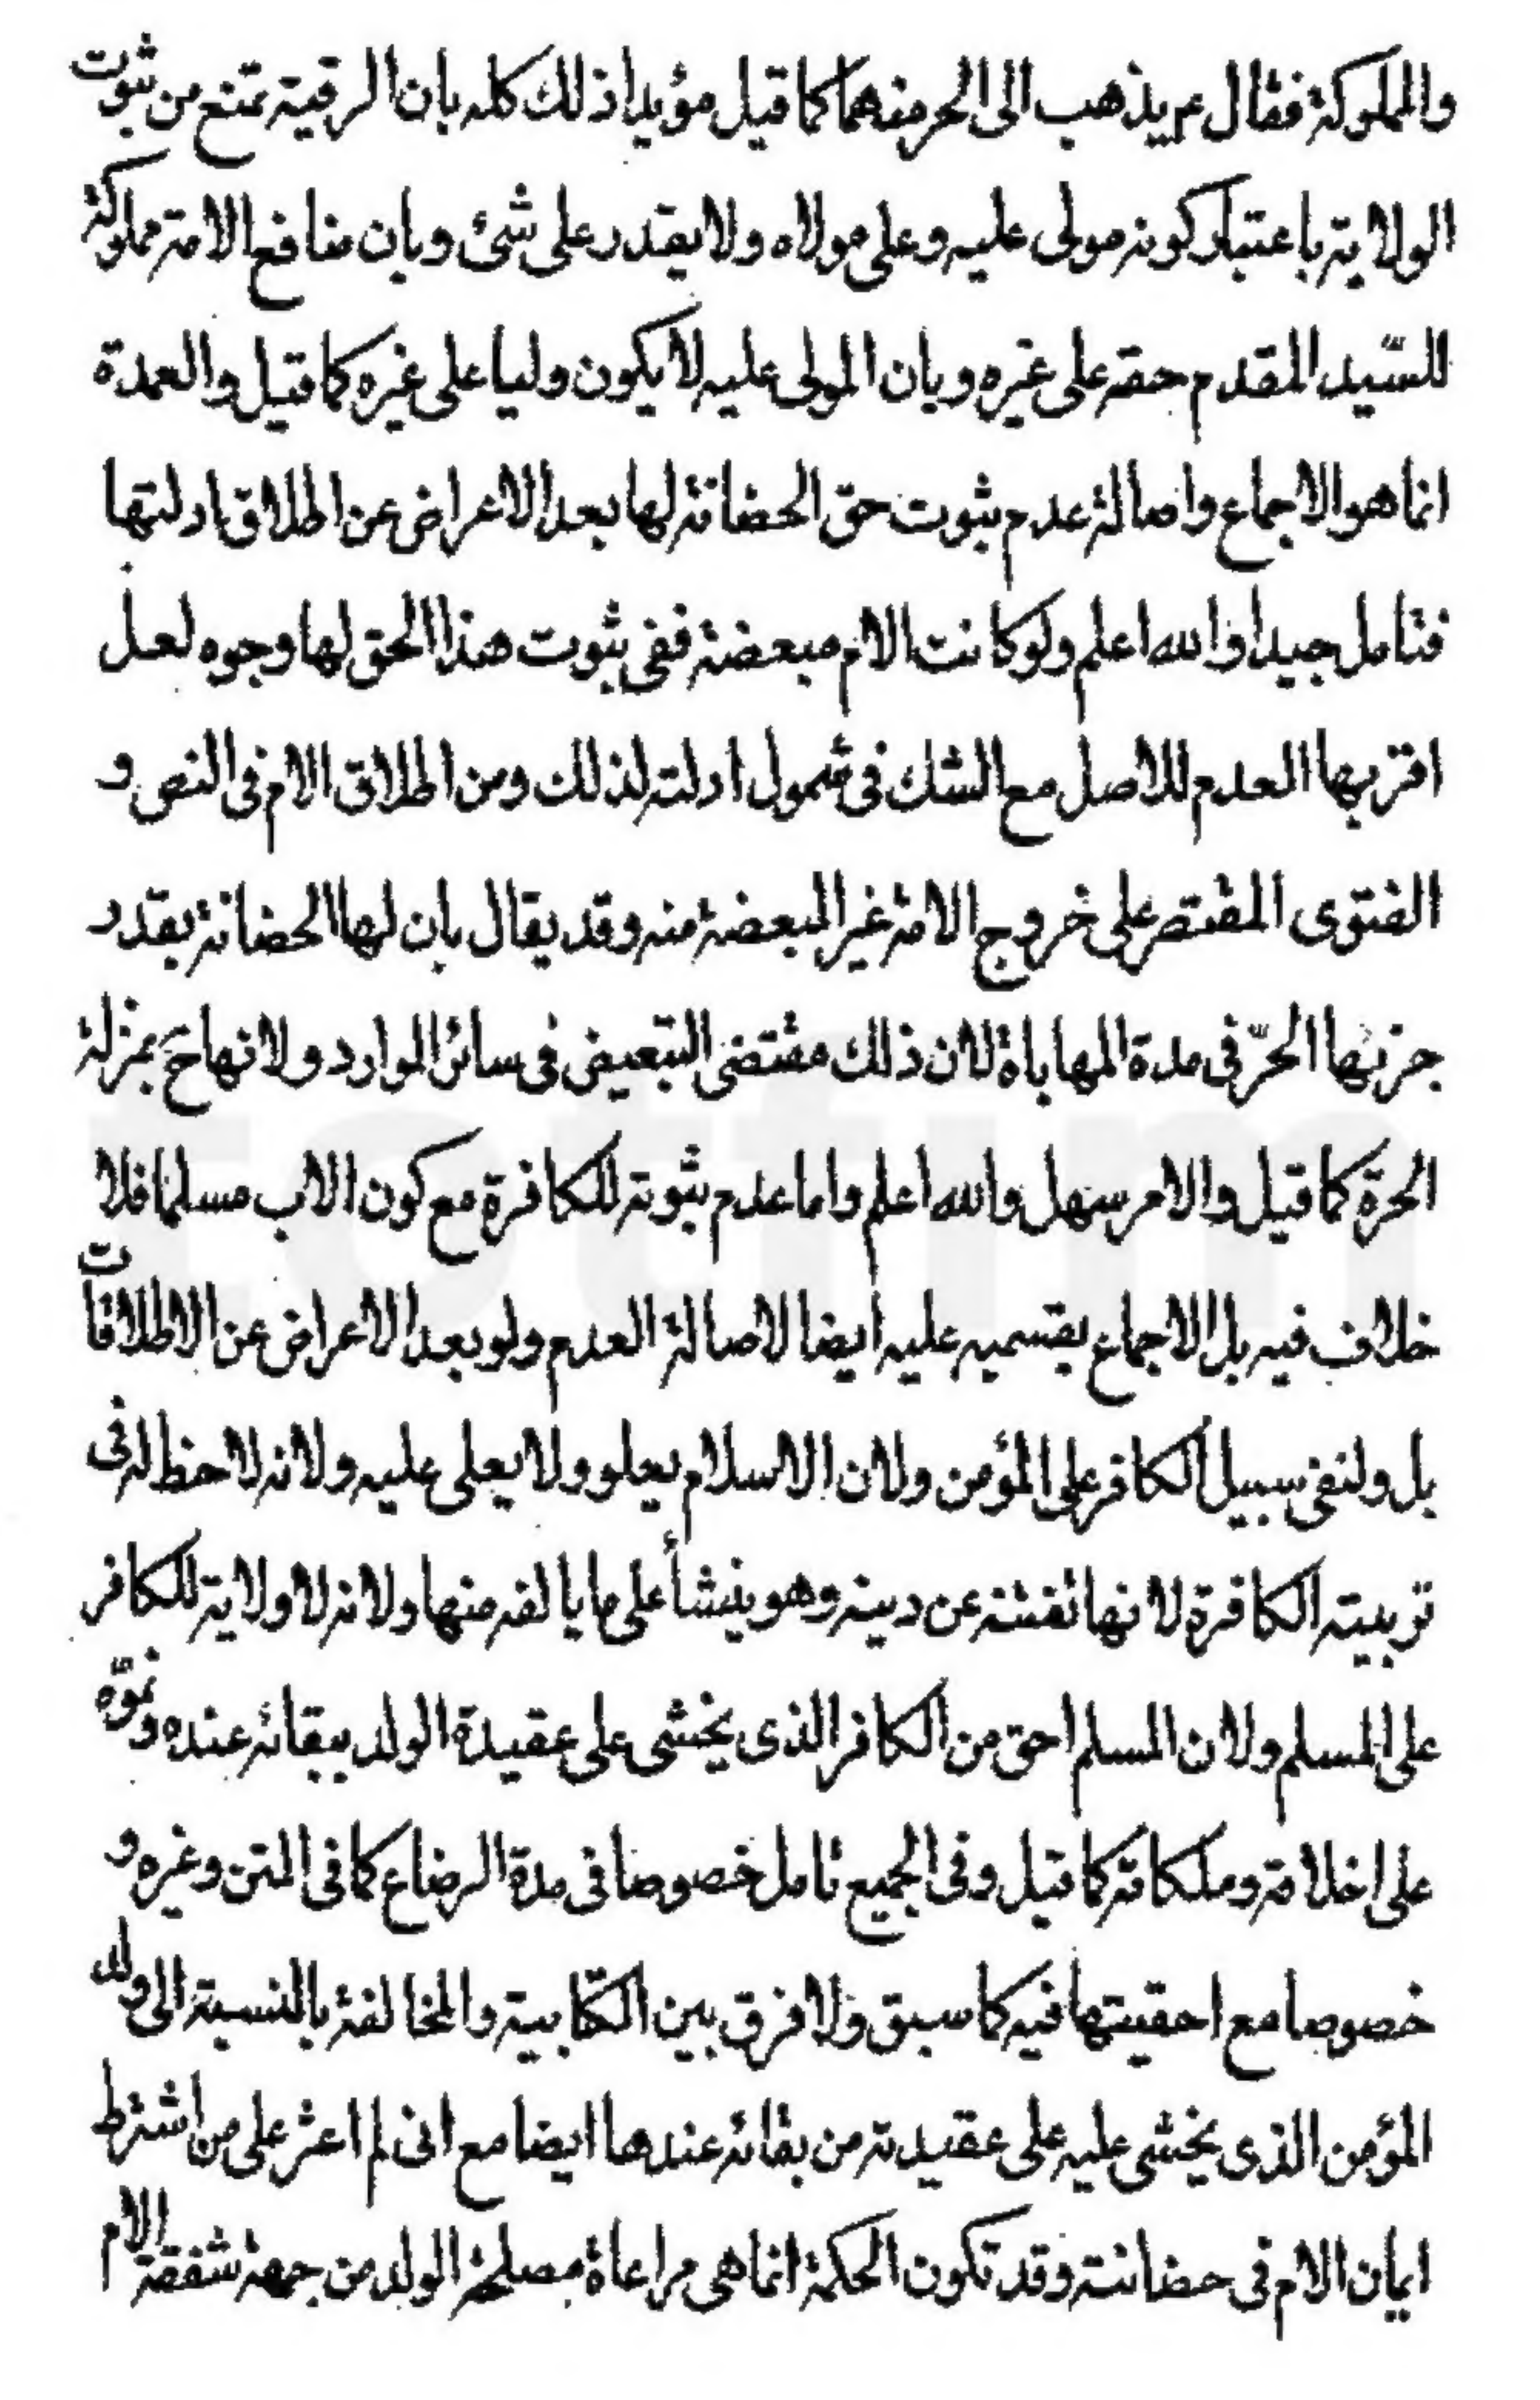 والمملوكة فقال ع يذهب الى الحر منهما كما قيل مؤيدا ذلك كله بان الرقية تمنع من ثبوت
الولاية باعتبار كونه مولى عليه وعلى مولاه ولا يقدر على شئ وبان منافع الامة مملوكة
للسّيد المقدم حقه على غيره وبان المولى عليه لا يكون وليا على غيره كما قيل والعمدة
انما هو الاجماع واصالة عدم ثبوت حق الحضانة لها بعد الاعراض عن اطلاق ادلتها
فتامل جيدا والله اعلم ولو كانت الام مبعضة ففى ثبوت هذا الحق لها وجوه لعل
اقربها العدم للاصل مع الشك فى شمول ادلته لذلك ومن اطلاق الام فى النص و
الفتوى المقتصر على خروج الامة غير المبعضة منه وقد يقال بان لها الحضانة بقدر
جزئها الحرّ فى مدة المهاباة لان ذلك مقتضى التبعيض فى سائر الموارد ولانها ح بمنزلة
الحرة كما قيل والامر سهل والله اعلم واما عدم ثبوته للكافرة مع كون الاب مسلما فلا
خلاف فيه بل الاجماع بقسميه عليه ايضا لاصالة العدم ولو بعد الاعراض عن الاطلاقات
بل ولنفى سبيل الكافر على المؤمن ولان الاسلام يعلو ولا يعلى عليه ولانه لا حظ له فى
تربيته الكافرة لانها تفتنه عن دينه وهو ينشأ على ما يالفه منها ولانه لا ولاية للكافر
على المسلم ولان المسلم احق من الكافر الذى يخشى على عقيدة الولد ببقائه عنده ونموّه
على اخلاقه وملكاته كما قيل وفى الجميع تامل خصوصا فى مدة الرضاع كما فى المتن وغيره و
خصوصا مع احقيتها فيه كما سبق ولا فرق بين الكتابية والمخالفة بالنسبة الى ولد
المؤمن الذى يخشى عليه على عقيدته من بقائه عندها ايضا مع انى لم اعثر على من اشترط
ايمان الام فى حضانته وقد تكون الحكمة انما هى مراعاة مصلحة الولد من جهة شفقة الام